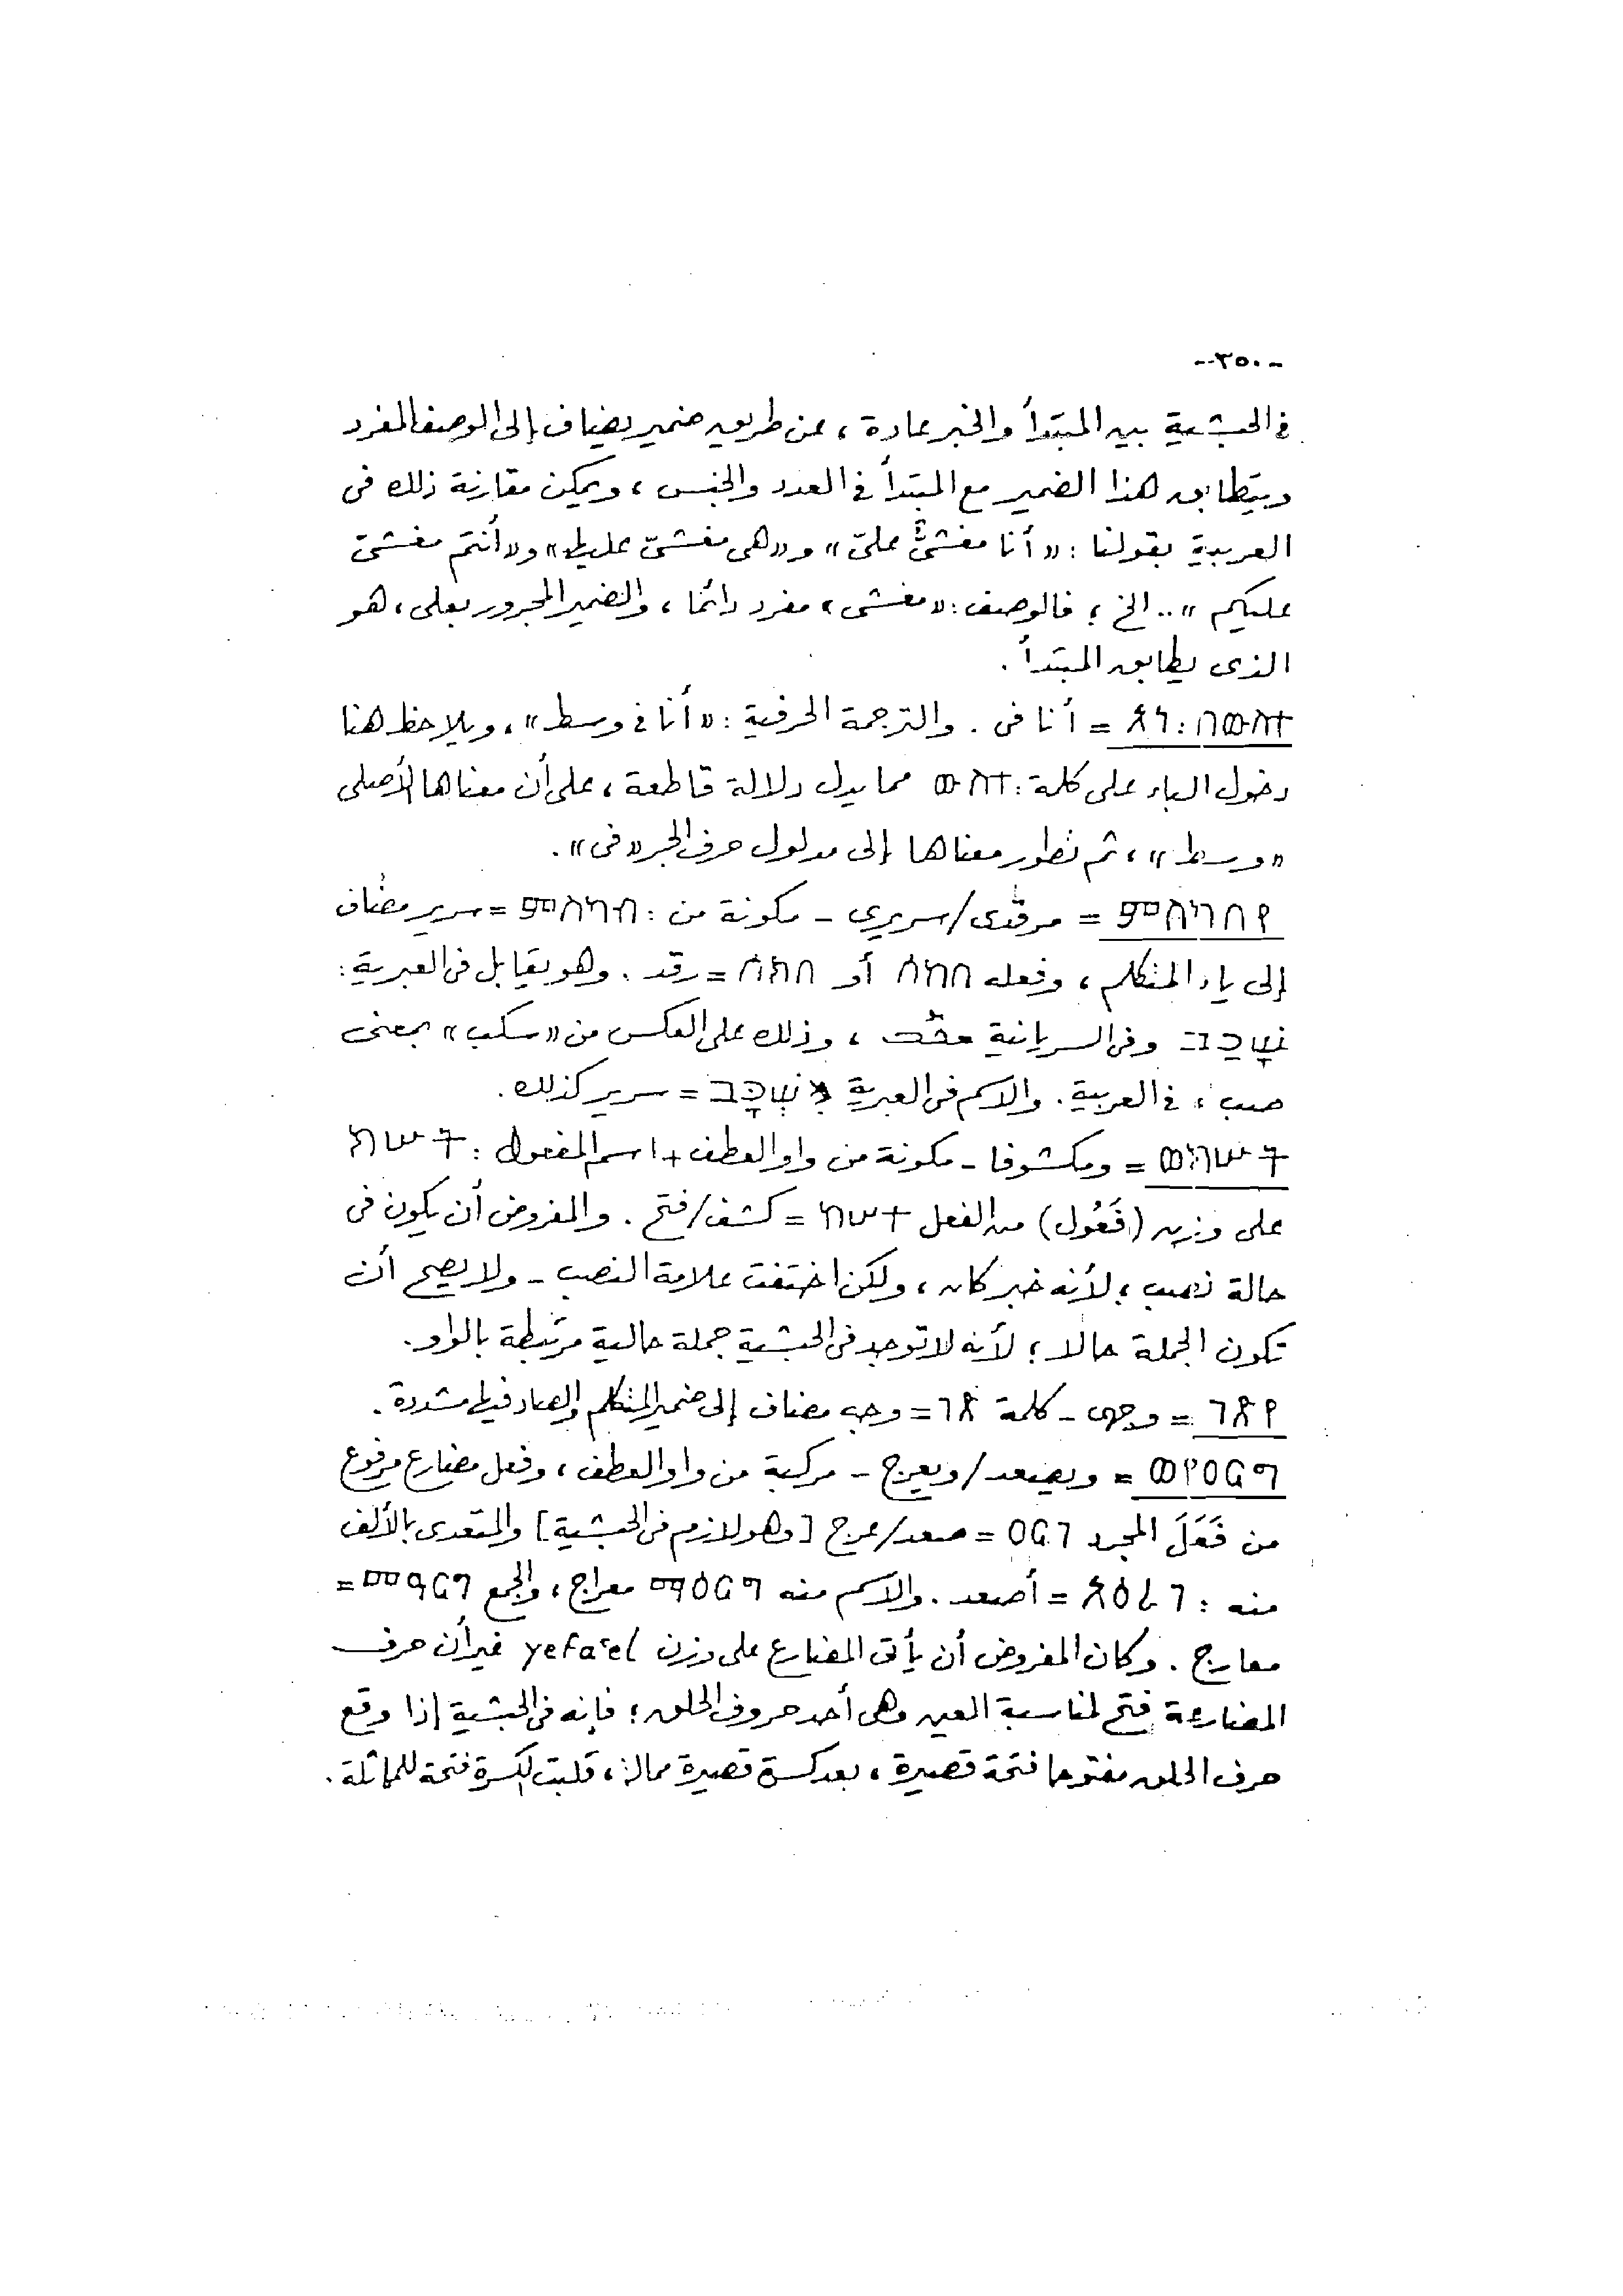 -٣٥٠-
فى الحبشية بين المبتدأ والخبر عادة ، عن طريق ضمير يضاف إلى الوصف المفرد
ويتطابق هذا الضمير مع المبتدأ فى العدد والجنس ، ويمكن مقارنة ذلك فى
العربية بقولنا : «أنا مغشىٌّ علىّ» و«هى مغشىّ عليها» و«أنتم مغشىّ
عليكم» .. الخ ؛ فالوصف : «مغشى» مفرد دائما ، والضمير المجرور بعلى ، هو
الذى يطابق المبتدأ .
አነ : በውስተ = أنا فى . والترجمة الحرفية : «أنا فى وسط» ، ويلاحظ هنا
دخول الباء على كلمة : ውስተ مما يدل دلالة قاطعة ، على أن معناها الأصلى
«وسط» ، ثم تطور معناها إلى مدلول حرف الجر «فى» .
ምስካብየ = مرقدى/سريرى - مكونة من : ምስካብ = سرير مضاف
إلى ياء المتكلم ، وفعله ሰከበ أو ሰክበ = رقد . وهو يقابل فى العبرية :
שָׁכַב وفى السريانية ܫܟܒ ، وذلك على العكس من «سكب» بمعنى
صب ، فى العربية . والاسم فى العبرية מִשְׁכָּב = سرير كذلك .
ወክሡት = ومكشوفا - مكونة من واو العطف + اسم المفعول : ክሡት
على وزن (فَعُول) من الفعل ከሠተ = كشف/فتح . والمفروض أن يكون فى
حالة نصب ؛ لأنه خبر كان ، ولكن اختفت علامة النصب - ولا يصح أن
تكون الجملة حالا ؛ لأنه لا توجد فى الحبشية جملة حالية مرتبطة بالواو .
ገጽየ = وجهى - كلمة ገጽ = وجه مضاف إلى ضمير المتكلم والصاد فيها مشددة .
ወየዐርግ = ويصعد/ويعرج - مركبة من واو العطف ، وفعل مضارع مرفوع
من فَعَلَ المجرد ዐርገ = صعد/عرج [وهو لازم فى الحبشية] والمتعدى بالألف
منه : አዕረገ = أصعد . والاسم منه ማዕርግ معراج ، والجمع መዓርግ =
معارج . وكان المفروض أن يأتى المضارع على وزن yefaʿel غير أن حرف
المضارعة فتح لمناسبة العين وهى أحد حروف الحلق ؛ فإنه فى الحبشية إذا وقع
حرف الحلق مفتوحا فتحة قصيرة ، بعد كسرة قصيرة ممالة ، قلبت الكسرة فتحة للمماثلة .